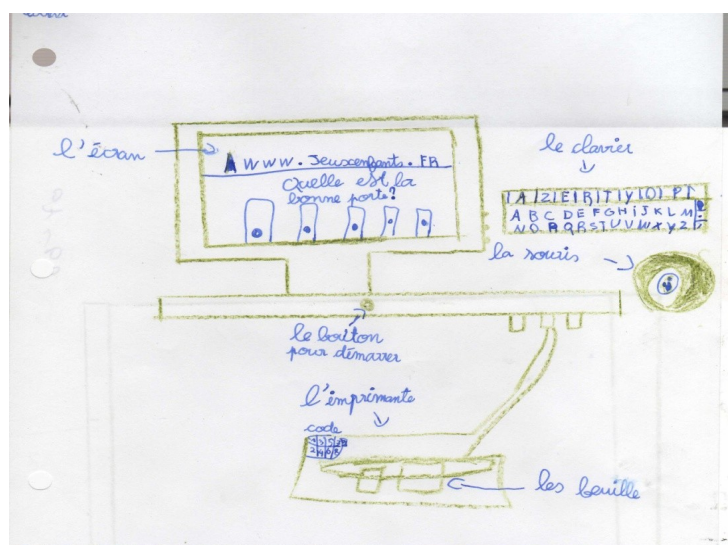 l'écran
www.Jeuxenfants.FR
Quelle est la
bonne porte?
le clavier
A B C D E F G H i J K L M
N O P Q R S T U V W X Y Z
la souris
le bouton
pour démarrer
l'imprimante
code
les beuille